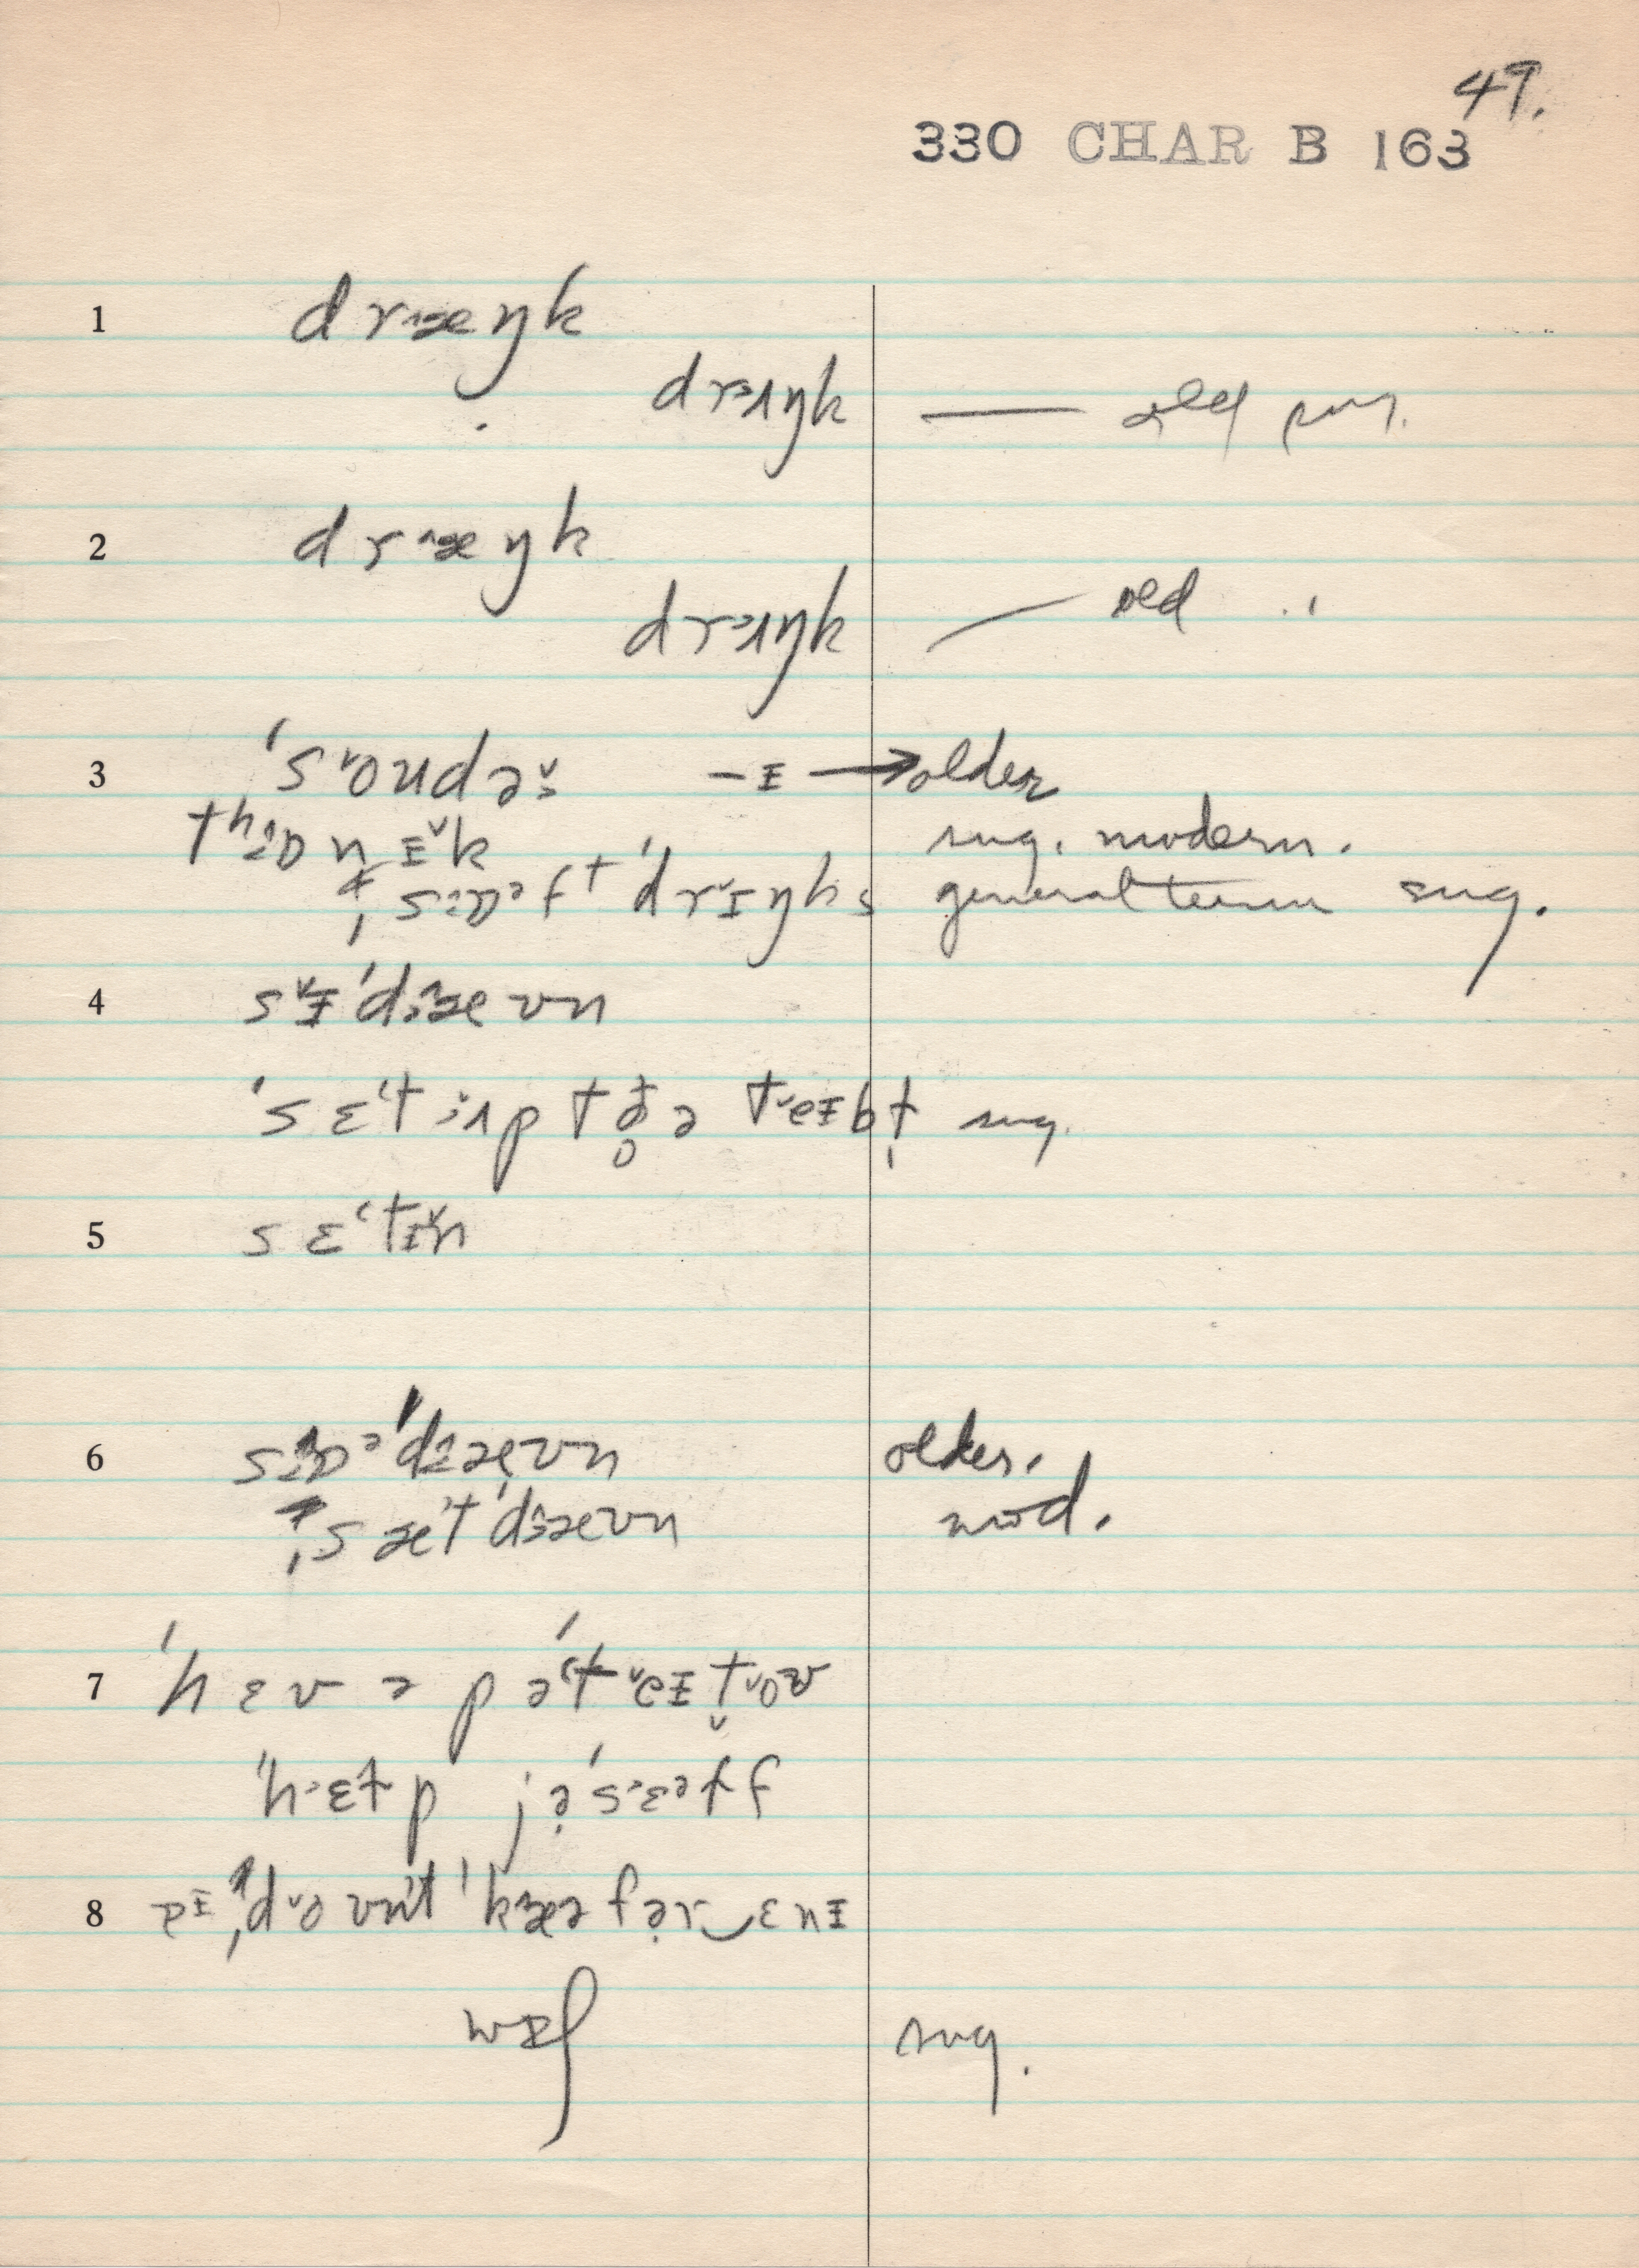 49.
330 CHAR B 163
1 drᵻæŋk
drɜɪŋk — old pron.
2 drᵻæŋk
drɜɪŋk — old "
3 ˈsoudəs -ɪ → older
thɒnɪk sug. modern.
ˌsɒəft ˈdrɪŋks general term sug.
4 sɪˈdæun
ˈsɛt ʌp tðə teɪbt sug.
5 sɛˈtɪn
6 sɒəˈdæun older.
ˌsætˈdæun mod.
7 ˈhɛv ə pəˈteɪtou
ˈhɛtp jəˈsɛətf
8 aɪ ˌdount ˈkæə fər‿ɛnɪ
wɪʃ sug.